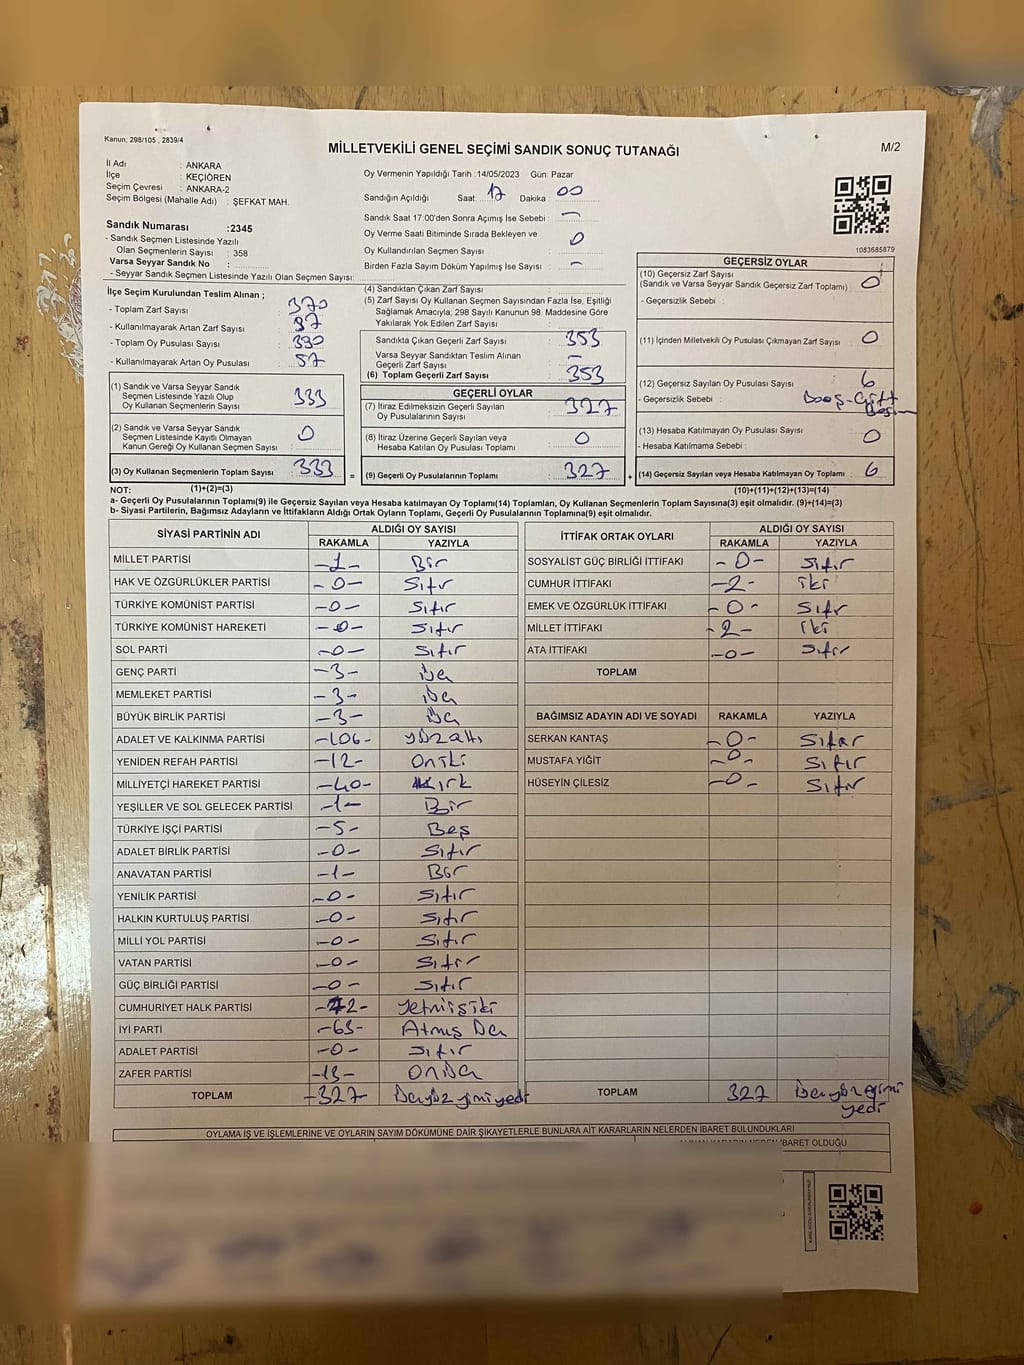 Kanun: 298/105 , 2839/4
MİLLETVEKİLİ GENEL SEÇİMİ SANDIK SONUÇ TUTANAĞI
M/2
İl Adı : ANKARA
İlçe : KEÇİÖREN
Seçim Çevresi : ANKARA-2
Seçim Bölgesi (Mahalle Adı) : ŞEFKAT MAH.
Sandık Numarası :2345
- Sandık Seçmen Listesinde Yazılı
Olan Seçmenlerin Sayısı : 358
Varsa Seyyar Sandık No :
- Seyyar Sandık Seçmen Listesinde Yazılı Olan Seçmen Sayısı:
Oy Vermenin Yapıldığı Tarih :14/05/2023 Gün: Pazar
Sandığın Açıldığı Saat: 17 Dakika : 00
Sandık Saat 17:00'den Sonra Açımış İse Sebebi : -
Oy Verme Saati Bitiminde Sırada Bekleyen ve
Oy Kullandırılan Seçmen Sayısı : 0
Birden Fazla Sayım Döküm Yapılmış İse Sayısı : -
1083685879
İlçe Seçim Kurulundan Teslim Alınan ;
- Toplam Zarf Sayısı : 370
- Kullanılmayarak Artan Zarf Sayısı : 37
- Toplam Oy Pusulası Sayısı : 390
- Kullanılmayarak Artan Oy Pusulası : 57
(1) Sandık ve Varsa Seyyar Sandık
Seçmen Listesinde Yazılı Olup
Oy Kullanan Seçmenlerin Sayısı : 333
(2) Sandık ve Varsa Seyyar Sandık
Seçmen Listesinde Kayıtlı Olmayan
Kanun Gereği Oy Kullanan Seçmen Sayısı : 0
(3) Oy Kullanan Seçmenlerin Toplam Sayısı : 333
(1)+(2)=(3)
(4) Sandıktan Çıkan Zarf Sayısı :
(5) Zarf Sayısı Oy Kullanan Seçmen Sayısından Fazla İse, Eşitliği
Sağlamak Amacıyla; 298 Sayılı Kanunun 98. Maddesine Göre
Yakılarak Yok Edilen Zarf Sayısı :
Sandıkta Çıkan Geçerli Zarf Sayısı : 353
Varsa Seyyar Sandıktan Teslim Alınan
Geçerli Zarf Sayısı : -
(6) Toplam Geçerli Zarf Sayısı : 353
GEÇERLİ OYLAR
(7) İtiraz Edilmeksizin Geçerli Sayılan
Oy Pusulalarının Sayısı : 327
(8) İtiraz Üzerine Geçerli Sayılan veya
Hesaba Katılan Oy Pusulası Toplamı : 0
= (9) Geçerli Oy Pusulalarının Toplamı : 327 +
GEÇERSİZ OYLAR
(10) Geçersiz Zarf Sayısı
(Sandık ve Varsa Seyyar Sandık Geçersiz Zarf Toplamı) : 0
- Geçersizlik Sebebi :
(11) İçinden Milletvekili Oy Pusulası Çıkmayan Zarf Sayısı : 0
(12) Geçersiz Sayılan Oy Pusulası Sayısı : 6
- Geçersizlik Sebebi : Boş-Çift
(13) Hesaba Katılmayan Oy Pusulası Sayısı : 0
- Hesaba Katılmama Sebebi :
(14) Geçersiz Sayılan veya Hesaba Katılmayan Oy Toplamı : 6
(10)+(11)+(12)+(13)=(14)
NOT:
a- Geçerli Oy Pusulalarının Toplamı(9) ile Geçersiz Sayılan veya Hesaba katılmayan Oy Toplamı(14) Toplamları, Oy Kullanan Seçmenlerin Toplam Sayısına(3) eşit olmalıdır. (9)+(14)=(3)
b- Siyasi Partilerin, Bağımsız Adayların ve İttifakların Aldığı Ortak Oyların Toplamı, Geçerli Oy Pusulalarının Toplamına(9) eşit olmalıdır.
SİYASİ PARTİNİN ADI ALDIĞI OY SAYISI
RAKAMLA YAZIYLA
MİLLET PARTİSİ -1- Bir
HAK VE ÖZGÜRLÜKLER PARTİSİ -0- Sıfır
TÜRKİYE KOMÜNİST PARTİSİ -0- Sıfır
TÜRKİYE KOMÜNİST HAREKETİ -0- Sıfır
SOL PARTİ -0- Sıfır
GENÇ PARTİ -3- Üç
MEMLEKET PARTİSİ -3- Üç
BÜYÜK BİRLİK PARTİSİ -3- Üç
ADALET VE KALKINMA PARTİSİ -106- yüzaltı
YENİDEN REFAH PARTİSİ -12- Oniki
MİLLİYETÇİ HAREKET PARTİSİ -40- Kırk
YEŞİLLER VE SOL GELECEK PARTİSİ -1- Bir
TÜRKİYE İŞÇİ PARTİSİ -5- Beş
ADALET BİRLİK PARTİSİ -0- Sıfır
ANAVATAN PARTİSİ -1- Bir
YENİLİK PARTİSİ -0- Sıfır
HALKIN KURTULUŞ PARTİSİ -0- Sıfır
MİLLİ YOL PARTİSİ -0- Sıfır
VATAN PARTİSİ -0- Sıfır
GÜÇ BİRLİĞİ PARTİSİ -0- Sıfır
CUMHURİYET HALK PARTİSİ -72- yetmişiki
İYİ PARTİ -63- Atmış Üç
ADALET PARTİSİ -0- Sıfır
ZAFER PARTİSİ -13- OnÜç
TOPLAM -327- Üçyüz yirmiyedi
İTTİFAK ORTAK OYLARI ALDIĞI OY SAYISI
RAKAMLA YAZIYLA
SOSYALİST GÜÇ BİRLİĞİ İTTİFAKI -0- Sıfır
CUMHUR İTTİFAKI -2- iki
EMEK VE ÖZGÜRLÜK İTTİFAKI -0- Sıfır
MİLLET İTTİFAKI -2- İki
ATA İTTİFAKI -0- Sıfır
TOPLAM
BAĞIMSIZ ADAYIN ADI VE SOYADI RAKAMLA YAZIYLA
SERKAN KANTAŞ -0- Sıfır
MUSTAFA YİĞİT -0- Sıfır
HÜSEYİN ÇİLESİZ -0- Sıfır
TOPLAM 327 Üçyüz yirmi
yedi
OYLAMA İŞ VE İŞLEMLERİNE VE OYLARIN SAYIM DÖKÜMÜNE DAİR ŞİKAYETLERLE BUNLARA AİT KARARLARIN NELERDEN İBARET BULUNDUKLARI
İBARET OLDUĞU